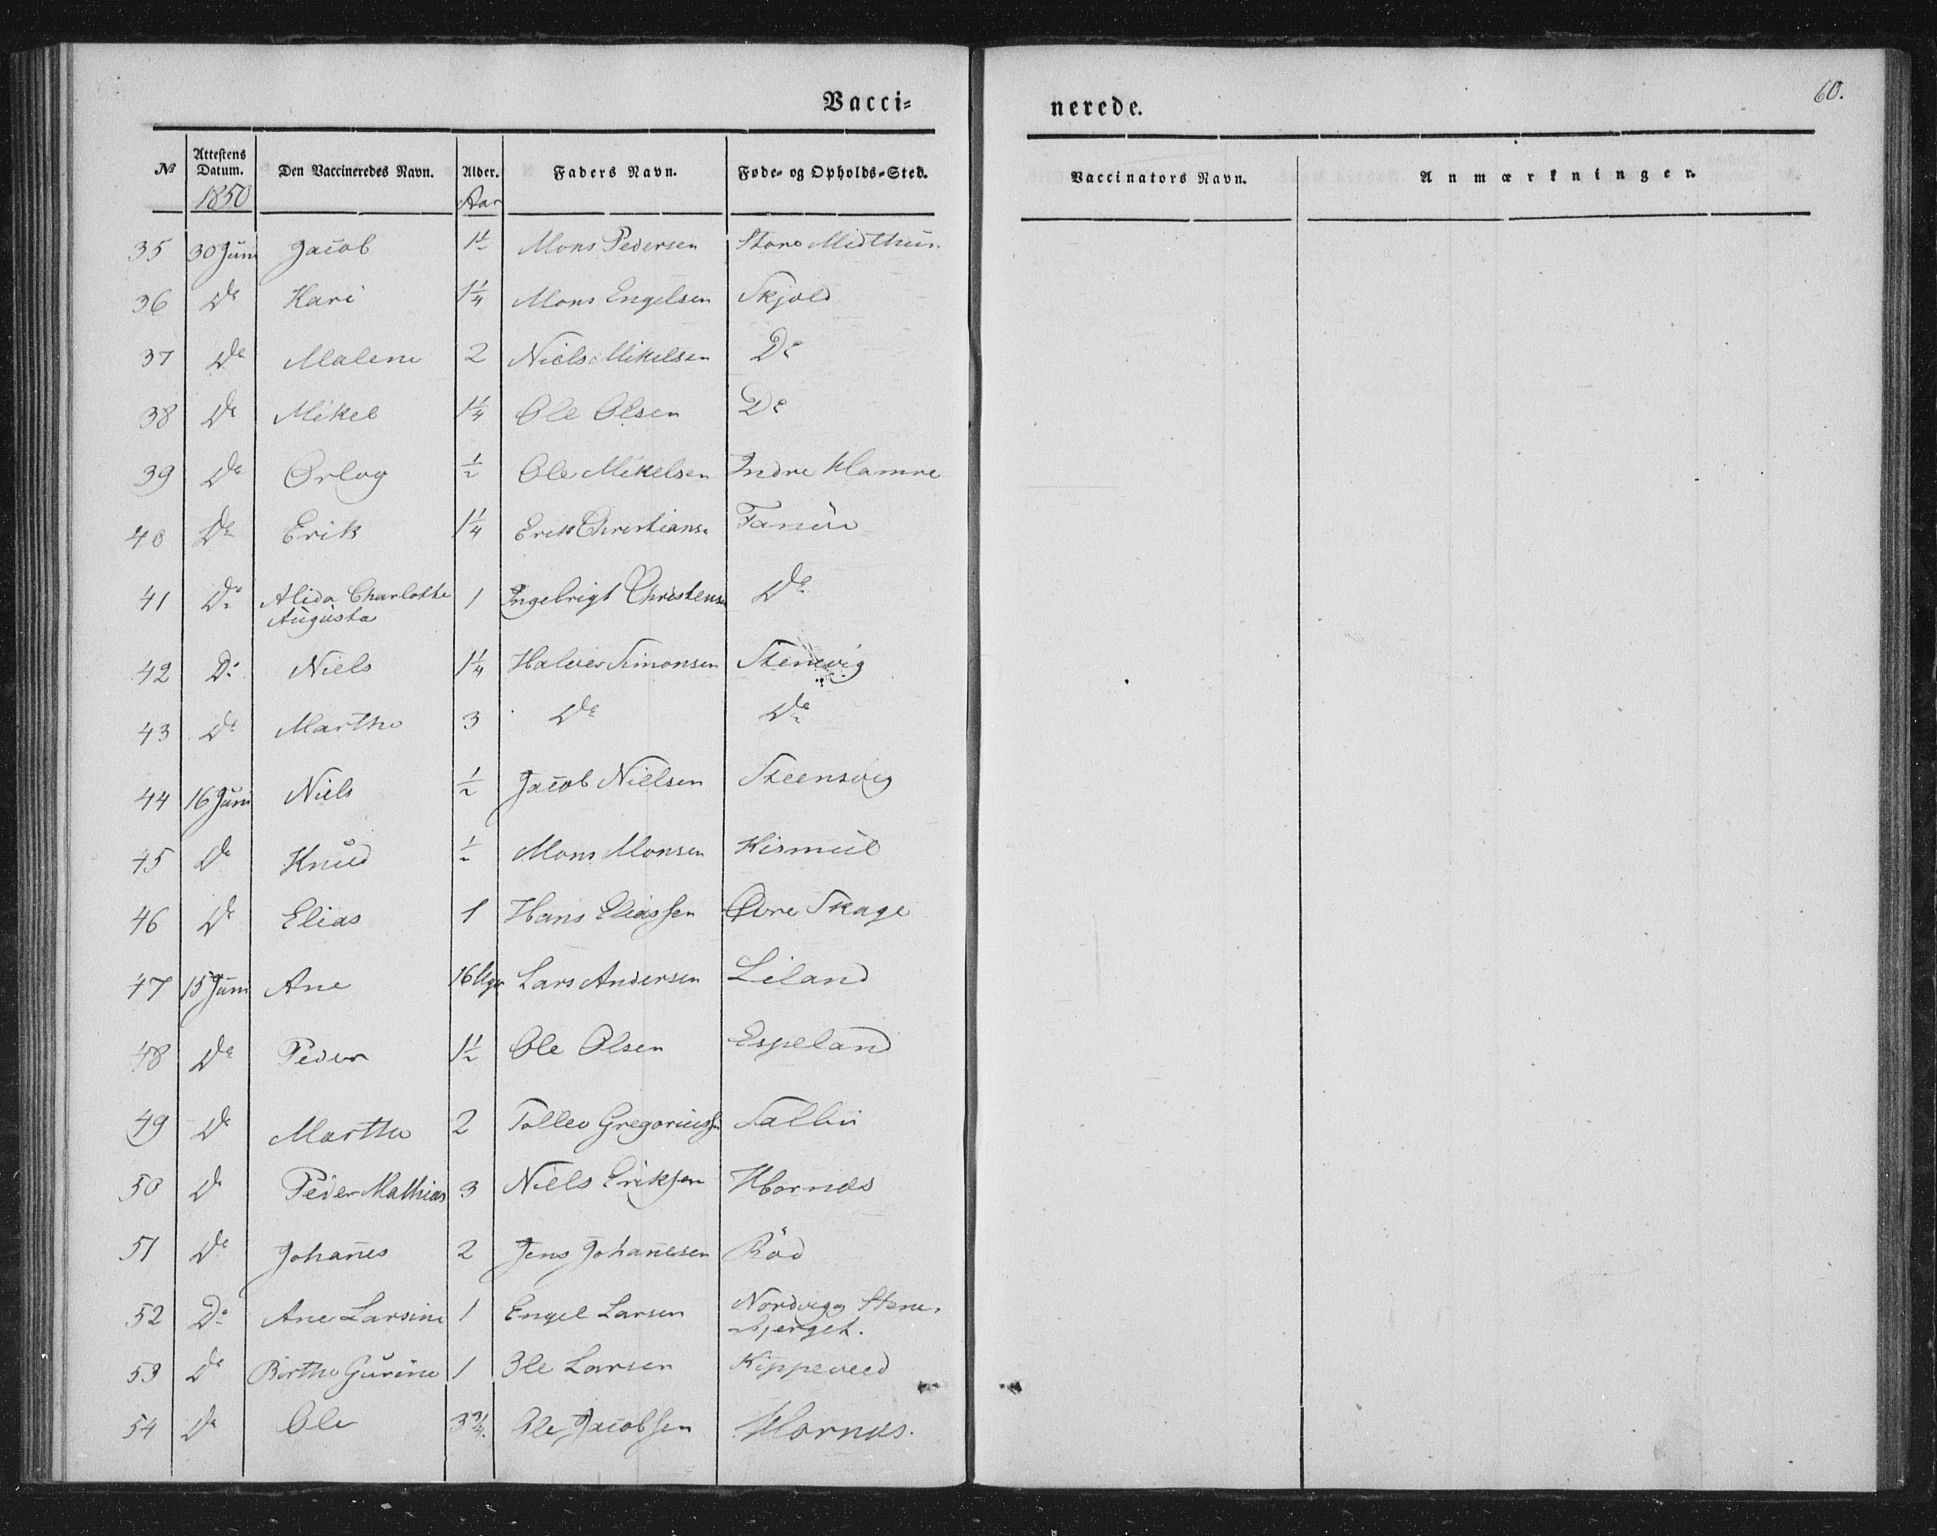 Vacci-
nerede.
60.
№ Attestens Datum. Den Vaccineredes Navn. Alder. Faders Navn. Føde- og Opholds-Sted. Vaccinators Navn. Anmærkninger.
1850 Aar
35 30 Juni Jacob Mons Pedersen Store Midthun
36 Do Kari 1¼ Mons Engelsen Skjold
37 Do Malene 2 Niels Mikelsen Do
38 Do Mikel 1¼ Ole Olsen Do
39 Do Orlog ½ Ole Mikelsen Indre Hamre
40 Do Erik 1¼ Erik Christians.
41 Do Alida Charlotte 1 Ingebrigt Christensen Do
Augusta
42 Do Niels 1¼ Simonsen Stenevig
43 Do Marthe 3 Do Do
44 16 Juni Niels ½ Jacob Nielsen Steensvig
45 Do Knud ½ Mons Monsen Kismul
46 Do Elias 1 Hans Eliassen Øvre Skage
47 15 Juni Ane 16 Uger Lars Andersen Liland
48 Do Peder 1½ Ole Olsen Espeland
49 Do Marthe 2 Tollev Gregoriussn
50 Do Peder Mathias 3 Niels Eriksen Hornæs
51 Do Johañes 2 Jens Johañesen Röd
52 Do Ane Larsine 1 Engel Larsen Nordvig Stene-
bjerget.
53 Do Birthe Gurine 1 Ole Larsen
54 Do Ole Ole Jacobsen Hornæs.